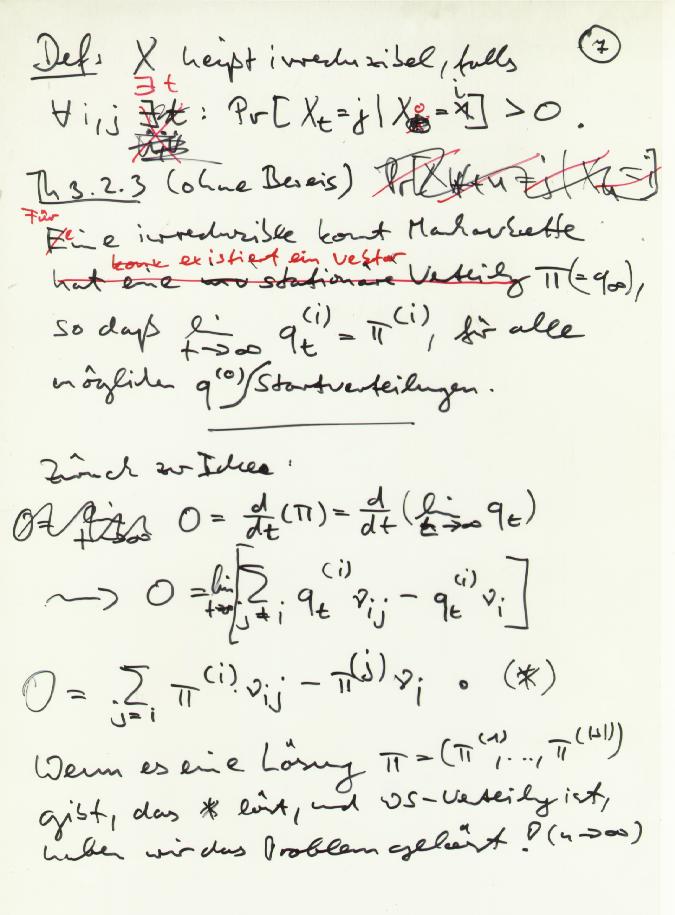 7
Def: X heißt irreduzibel, falls
∃ t
∀ i,j : Pr[ X_t = j | X_0 = i ] > 0 .
Th 3.2.3 (ohne Beweis) Pr[X_{t+u} = j | X_u = i]
Für
Eine irreduzible kont Markovkette
konv existiert ein Vektor
hat eine stationäre Verteilg π(=q_∞),
so daß lim_{t→∞} q_t^{(i)} = π^{(i)}, für alle
möglichen q^{(0)}/Startverteilungen.
Zurück zur Idee:
0 = d/dt (π) = d/dt (lim_{t→∞} q_t)
⇝ 0 = lim_{t→∞} [ Σ_{j≠i} q_t^{(i)} ν_{ij} − q_t^{(i)} ν_i ]
0 = Σ_{j=i} π^{(i)} ν_{ij} − π^{(j)} ν_i . (*)
Wenn es eine Lösung π = (π^{(1)},..., π^{(|S|)})
gibt, das * löst, und WS-Verteilg ist,
haben wir das Problem gelöst! (n→∞)